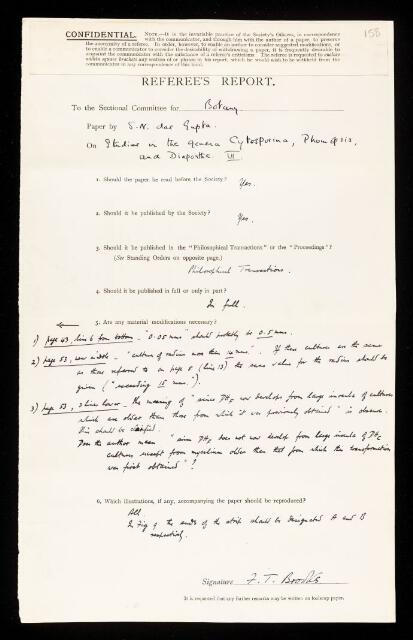 158
CONFIDENTIAL. NOTE.—It is the invariable practice of the Society's Officers, in correspondence
with the communicator, and through him with the author of a paper, to preserve
the anonymity of a referee. In order, however, to enable an author to consider suggested modifications, or
to enable a communicator to consider the desirability of withdrawing a paper, it is frequently desirable to
acquaint the communicator with the substance of a referee's criticisms. The referee is requested to enclose
within square brackets any phrases in his report, which he would wish to be withheld from the
communicator in any correspondence of this kind.
REFEREE'S REPORT.
To the Sectional Committee for Botany
Paper by S. N. das Gupta.
On Studies in the genera Cytosporina, Phomopsis,
and Diaporthe. VII.
1. Should the paper be read before the Society? Yes.
2. Should it be published by the Society? Yes.
3. Should it be published in the "Philosophical Transactions" or the "Proceedings"?
(See Standing Orders on opposite page.)
Philosophical Transactions.
4. Should it be published in full or only in part?
In full.
5. Are any material modifications necessary?
1) page 43, line 6 from bottom - "0.05 mm" should probably be 0.5 mm.
2) page 53, near middle - "culture of radius more than mm". If these cultures are the same
as those referred to on page 8 (line 13) the same value for the radius should be
given ("exceeding 15 mm").
3) page 53, 3 lines lower. the meaning of "since DHc now develops from large inocula of cultures
which are older than those from which it was previously obtained" is obscure.
This should be clarified.
Does the author mean "since DHc does not now develop from large inocula of DHc
cultures except from mycelium older than that from which the transformation
was first obtained"?
6. Which illustrations, if any, accompanying the paper should be reproduced?
All.
In Fig 9 the ends of the strip should be designated A and B
respectively.
Signature F. T. Brooks
It is requested that any further remarks may be written on foolscap paper.